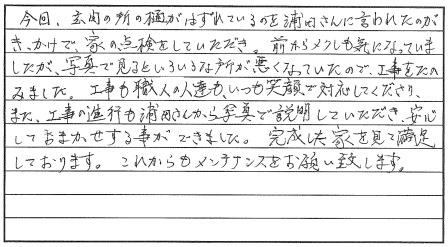 今回、玄関の所の樋がはずれているのを浦田さんに言われたのが
きっかけで、家の点検をしていただき。前からメクレも気になっていま
したが、写真で見るといろいろな所が悪くなっていたので、工事をたの
みました。工事も職人の人達も、いつも笑顔で対応してくださり、
また、工事の進行も浦田さんから写真で説明していただき、安心
しておまかせする事ができました。完成した家を見て満足
しております。これからもメンテナンスをお願い致します。